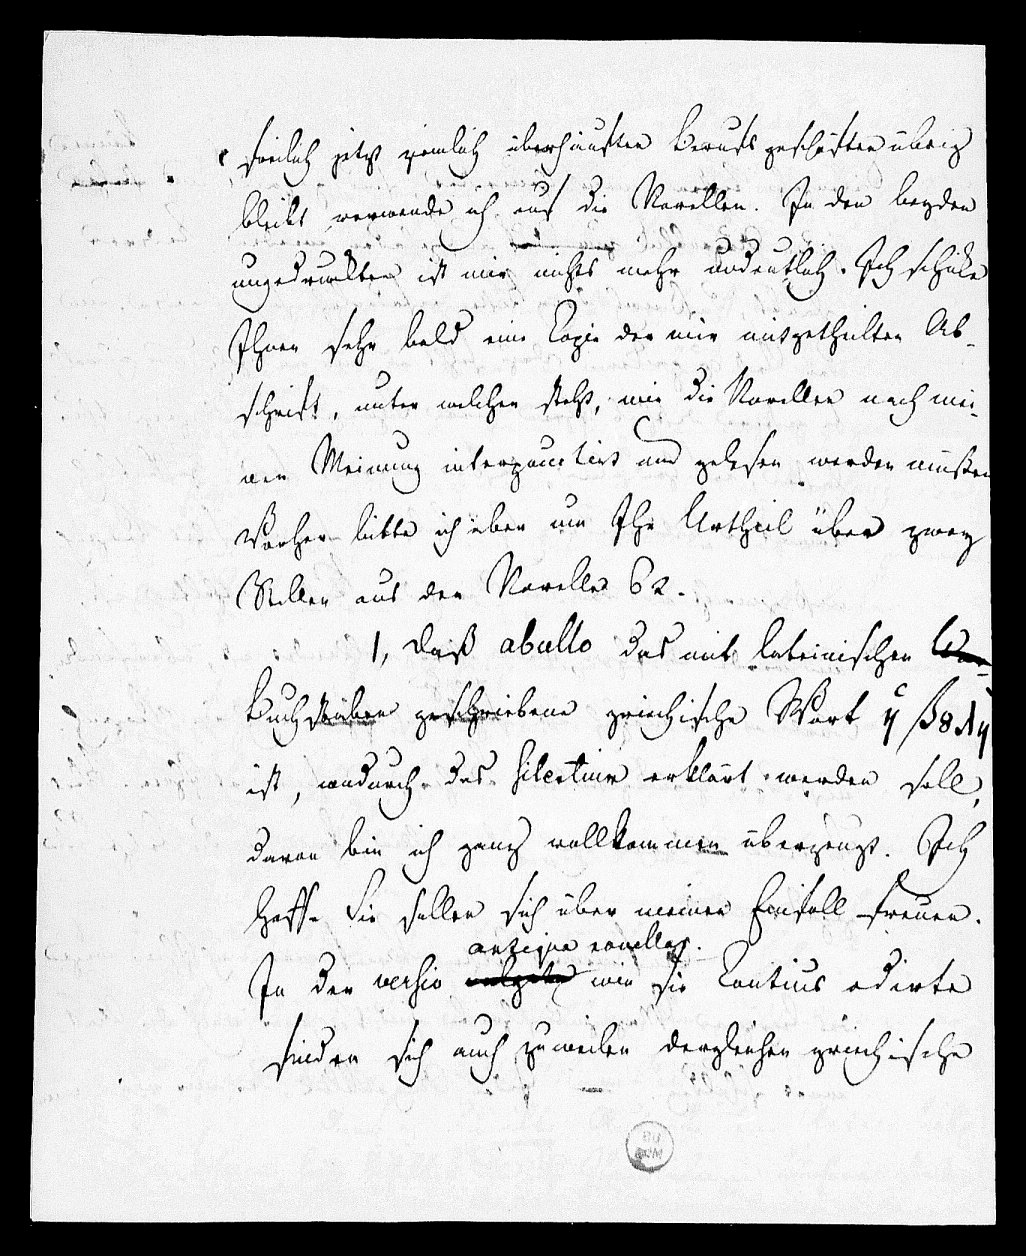 freilich jetzt ziemlich überhäuften Berufsgeschäften übrig
bleibt verwende ich auf die Novellen. In den beyden
ungedruckten ist mir nichts mehr undeutlich. Ich schicke
Ihnen sehr bald eine Copie der mir mitgetheilten Ab-
schrift, unter welcher steht, wie die Novellen nach mei-
nen Meinung interpunctirt und gelesen werden müssen
Vorher bitte ich aber um Ihr Urtheil über zwey
Stellen aus der Novelle 62.
1, Daß abullo das mit lateinischen
Buchstaben geschriebene griechische Wort ἡ βȣλὴ
ist, wodurch das silentium erklärt werden soll,
davon bin ich ganz vollkommen überzeugt. Ich
hoffe Sie sollen sich über meinen Einfall freuen.
antiqua novellar.
In der versio vulgata wie sie Contius edirte
finden sich auch zuweilen dergleichen griechische